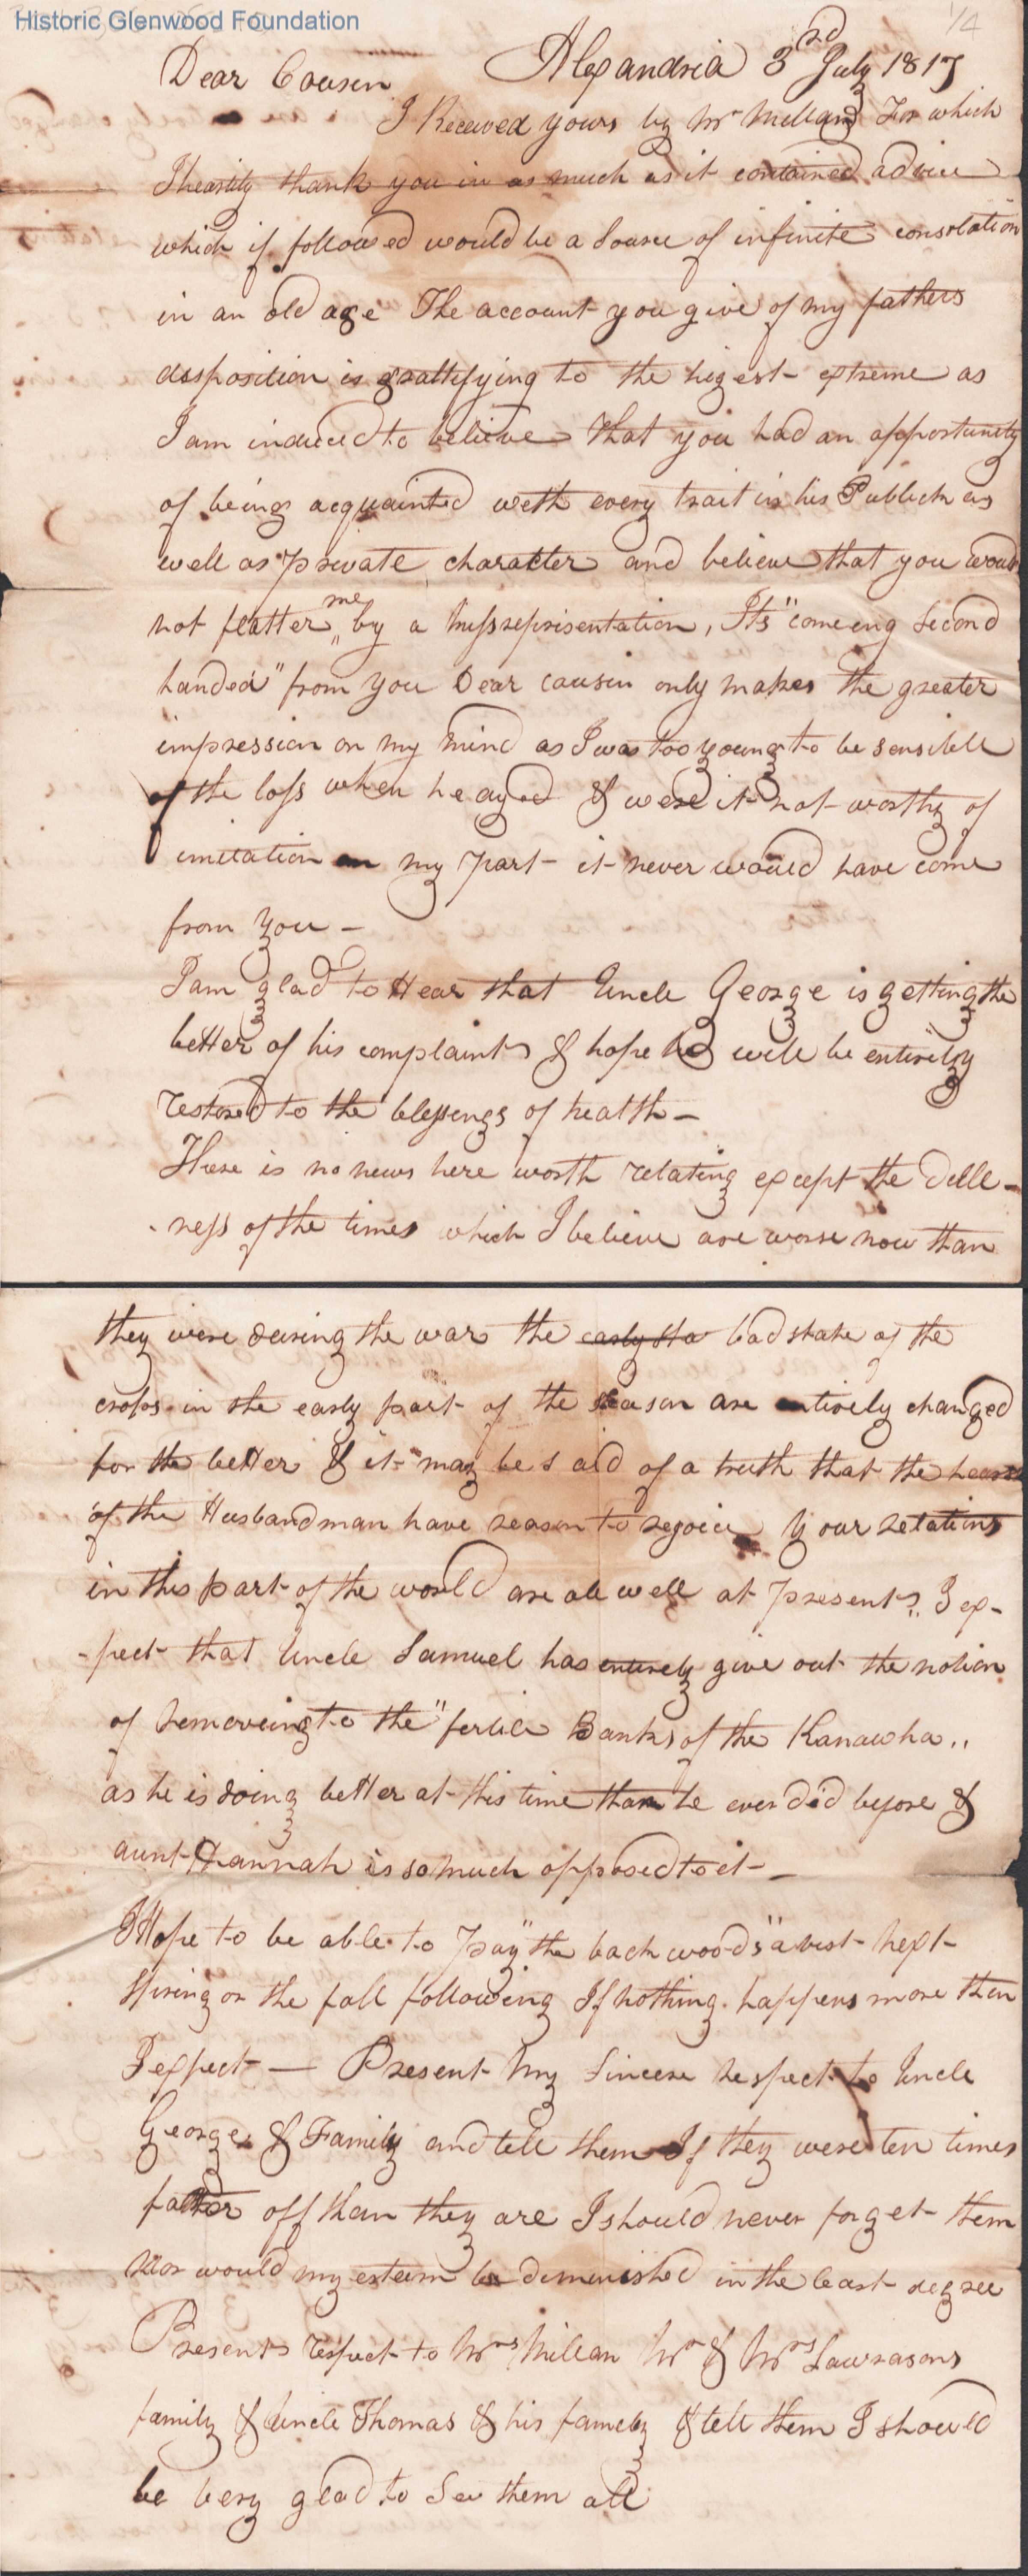 Historic Glenwood Foundation
1/4
Alexandria 3rd July 1817
Dear Cousin
I Received yours by Mr Millan For which
I heartily thank you in as much as it contained advice
which if followed would be a Source of infinite consolation
in an old age The account you give of my fathers
dissposition is grattifying to the higest extreme as
I am induced to believe that you had an opportunity
of being acquainted with every trait in his Publick as
well as private character and believe that you would
not flatter me by a missreprisentation, Its "comeing Second
handed" from you Dear cousin only makes the greater
impression on my mind as I was too young to be sensible
of the loss when he dyed & were it not worthy of
imitation on my part it never would have come
from you -
I am glad to Hear that Uncle George is getting the
better of his complaint & hope he will be entirely
restored to the blessings of health -
There is no news here worth relating except the dulle-
-ness of the times which I believe are worse now than
they were dureing the war the early sta bad state of the
crops in the early part of the season are entirely changed
for the better & it may be said of a truth that the hearts
of the Husbandman have reason to rejoice Your relations
in this part of the world are all well at present. I ex-
-pect that Uncle Samuel has entirely give out the notion
of removeing to the "fertile Banks of the Kanawha"
as he is doing better at this time than he ever did before &
aunt Hannah is so much opposed to it -
I Hope to be able to pay "the back woods" a visit next
Spring or the fall following If nothing happens more than
I expect — Present my Sincere respect to Uncle
George & Family and tell them If they were ten times
farther off than they are I should never forget them
Nor would my esteem be diminished in the least degree
Present respect to Mrs Millan Mr & Mrs Lawrasons
family & Uncle Thomas & his family & tell them I should
be very glad to See them all